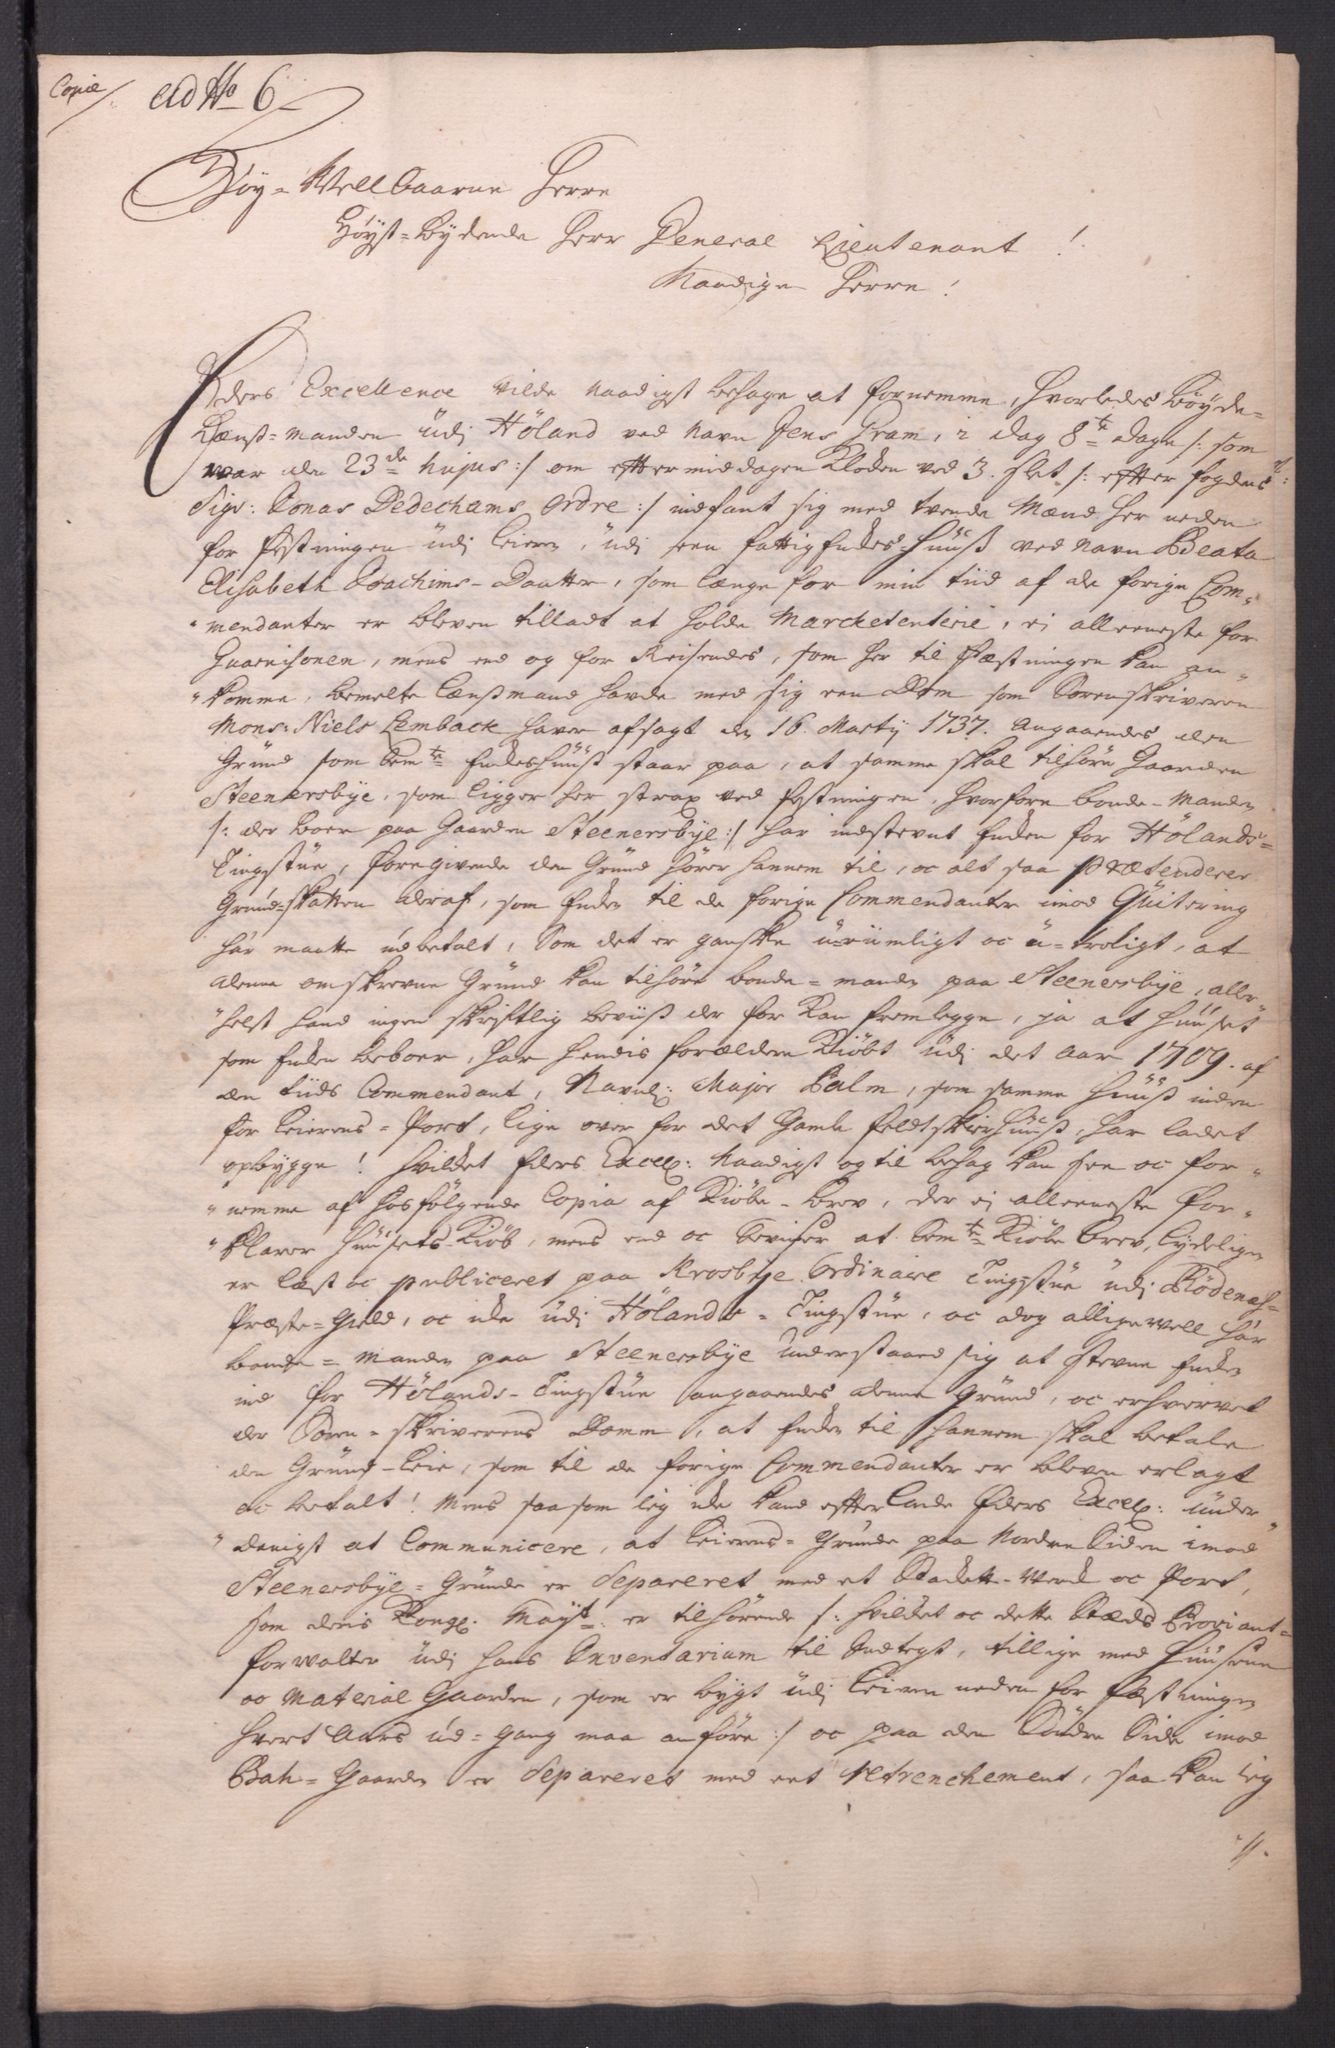 Copie/. ad No 6
Høy-Wellbaarne Herre
Høyst-Bydende Herr General Lieutenant!
Naadige Herre!
Eders Excellence vilde naadigst behage at fornemme, hvorledes Bøyde-
Lænss-manden udj Høland ved navn Jens Gram, i dag 8te dage /: som
war den 23de hujus :/ om effter middagen Klocken ved 3. slet /: effter fogdens
Sigr: Jonas Dedechams Ordre :/ indfant sig med tvende Mænd her neden
for festningen udj leiren, udj een fattig Enckes-huuss ved navn Beata
Elisabeth Joachims-Daatter, som længe for min tiid af de forige Com-
"mendanter er bleven tilladt at holde Marcketenterie, ei alleeneste for
Guarnisonen, mens end og for Reisendes, som her til Fæstningen kan an-
"komme, bemelte Lænssmand havde med sig een Dom som Sorenskriveren
Mons: Niels Lemback haver afsagt den 16. Martij 1737. angaaendes den
Grund som bemte Enckeshuuss staar paa, at samme skal tilhøre Gaarden
Steenersbye, som ligger her strax ved festningen, hvorfore bonde-Manden
/: der boer paa Gaarden Steenersbye :/ har indstevnt Encken for Hølands-
Tingstue, foregivende den Grund hører hannem til, oc alt saa prætenderer
Grund-skatten deraf, som Encken til de forige Commendanter imod Quitering
har maatte udbetalt, Som det er ganske u-riimligt oc u-troligt, at
denne omskrevne Grund kan tilhøre bonde-manden paa Steenersbye, aller-
"helst hand ingen skriftlig beviiss der for kan fremlegge, ja at Huuset
som Encken beboer, har hendis forældere Kiøbt udj det Aar 1709. af
den tiids Commendant, Navnl: Major Balm, som samme Huuss inden
for leierens-Port, lige over for det Gamle feldtskierhuuss, har ladet
opbygge! hvilcket Eders Excell: Naadigst og til behag kan see oc for-
"nemme af hosfølgende Copia af Kiøbe-brev, der ei alleeneste for-
"klarer Huusets-Kiøb, mens end oc beviser at bemte Kiøbe brev, lydeligen
er læst oc publiceret paa Krosbye Ordinaire Tingstue udj Rødenæs-
Præste-Gield, oc icke udj Hølands-Tingstue, oc dog alligevell har
bonde-Manden paa Steenersbye understaaed sig at stevne Encken
ind for Hølands-Tingstue angaaendes denne Grund, oc erhvervet
der Soren-skriverens Domme, at Encken til hannem skal betale
den Grund-leie, som til de forige Commendanter er bleven erlagt
oc betalt! Mens saasom ieg icke kand effterlade Eders Excell: under-
"danigst at Communicere, at Leierens-Grunde paa Nordre Siden imod
Steenersbye-Grunde er separeret med et Stacket-Verck oc Port,
som deris Kongl. Mayt: er tilhørende /: hvilcket oc dette Stæds Proviant-
forvalter udj hans Inventarium til Indtegt, tillige med Huusene
oc Material Gaarden, som er bygt udj Leieren neden for festningen
hvert Aars ud-gang maa anføre :/ oc paa den Søndre Side imod
Bah-Gaarden er Separeret med eet retrenchement, saa kan ieg
"//.